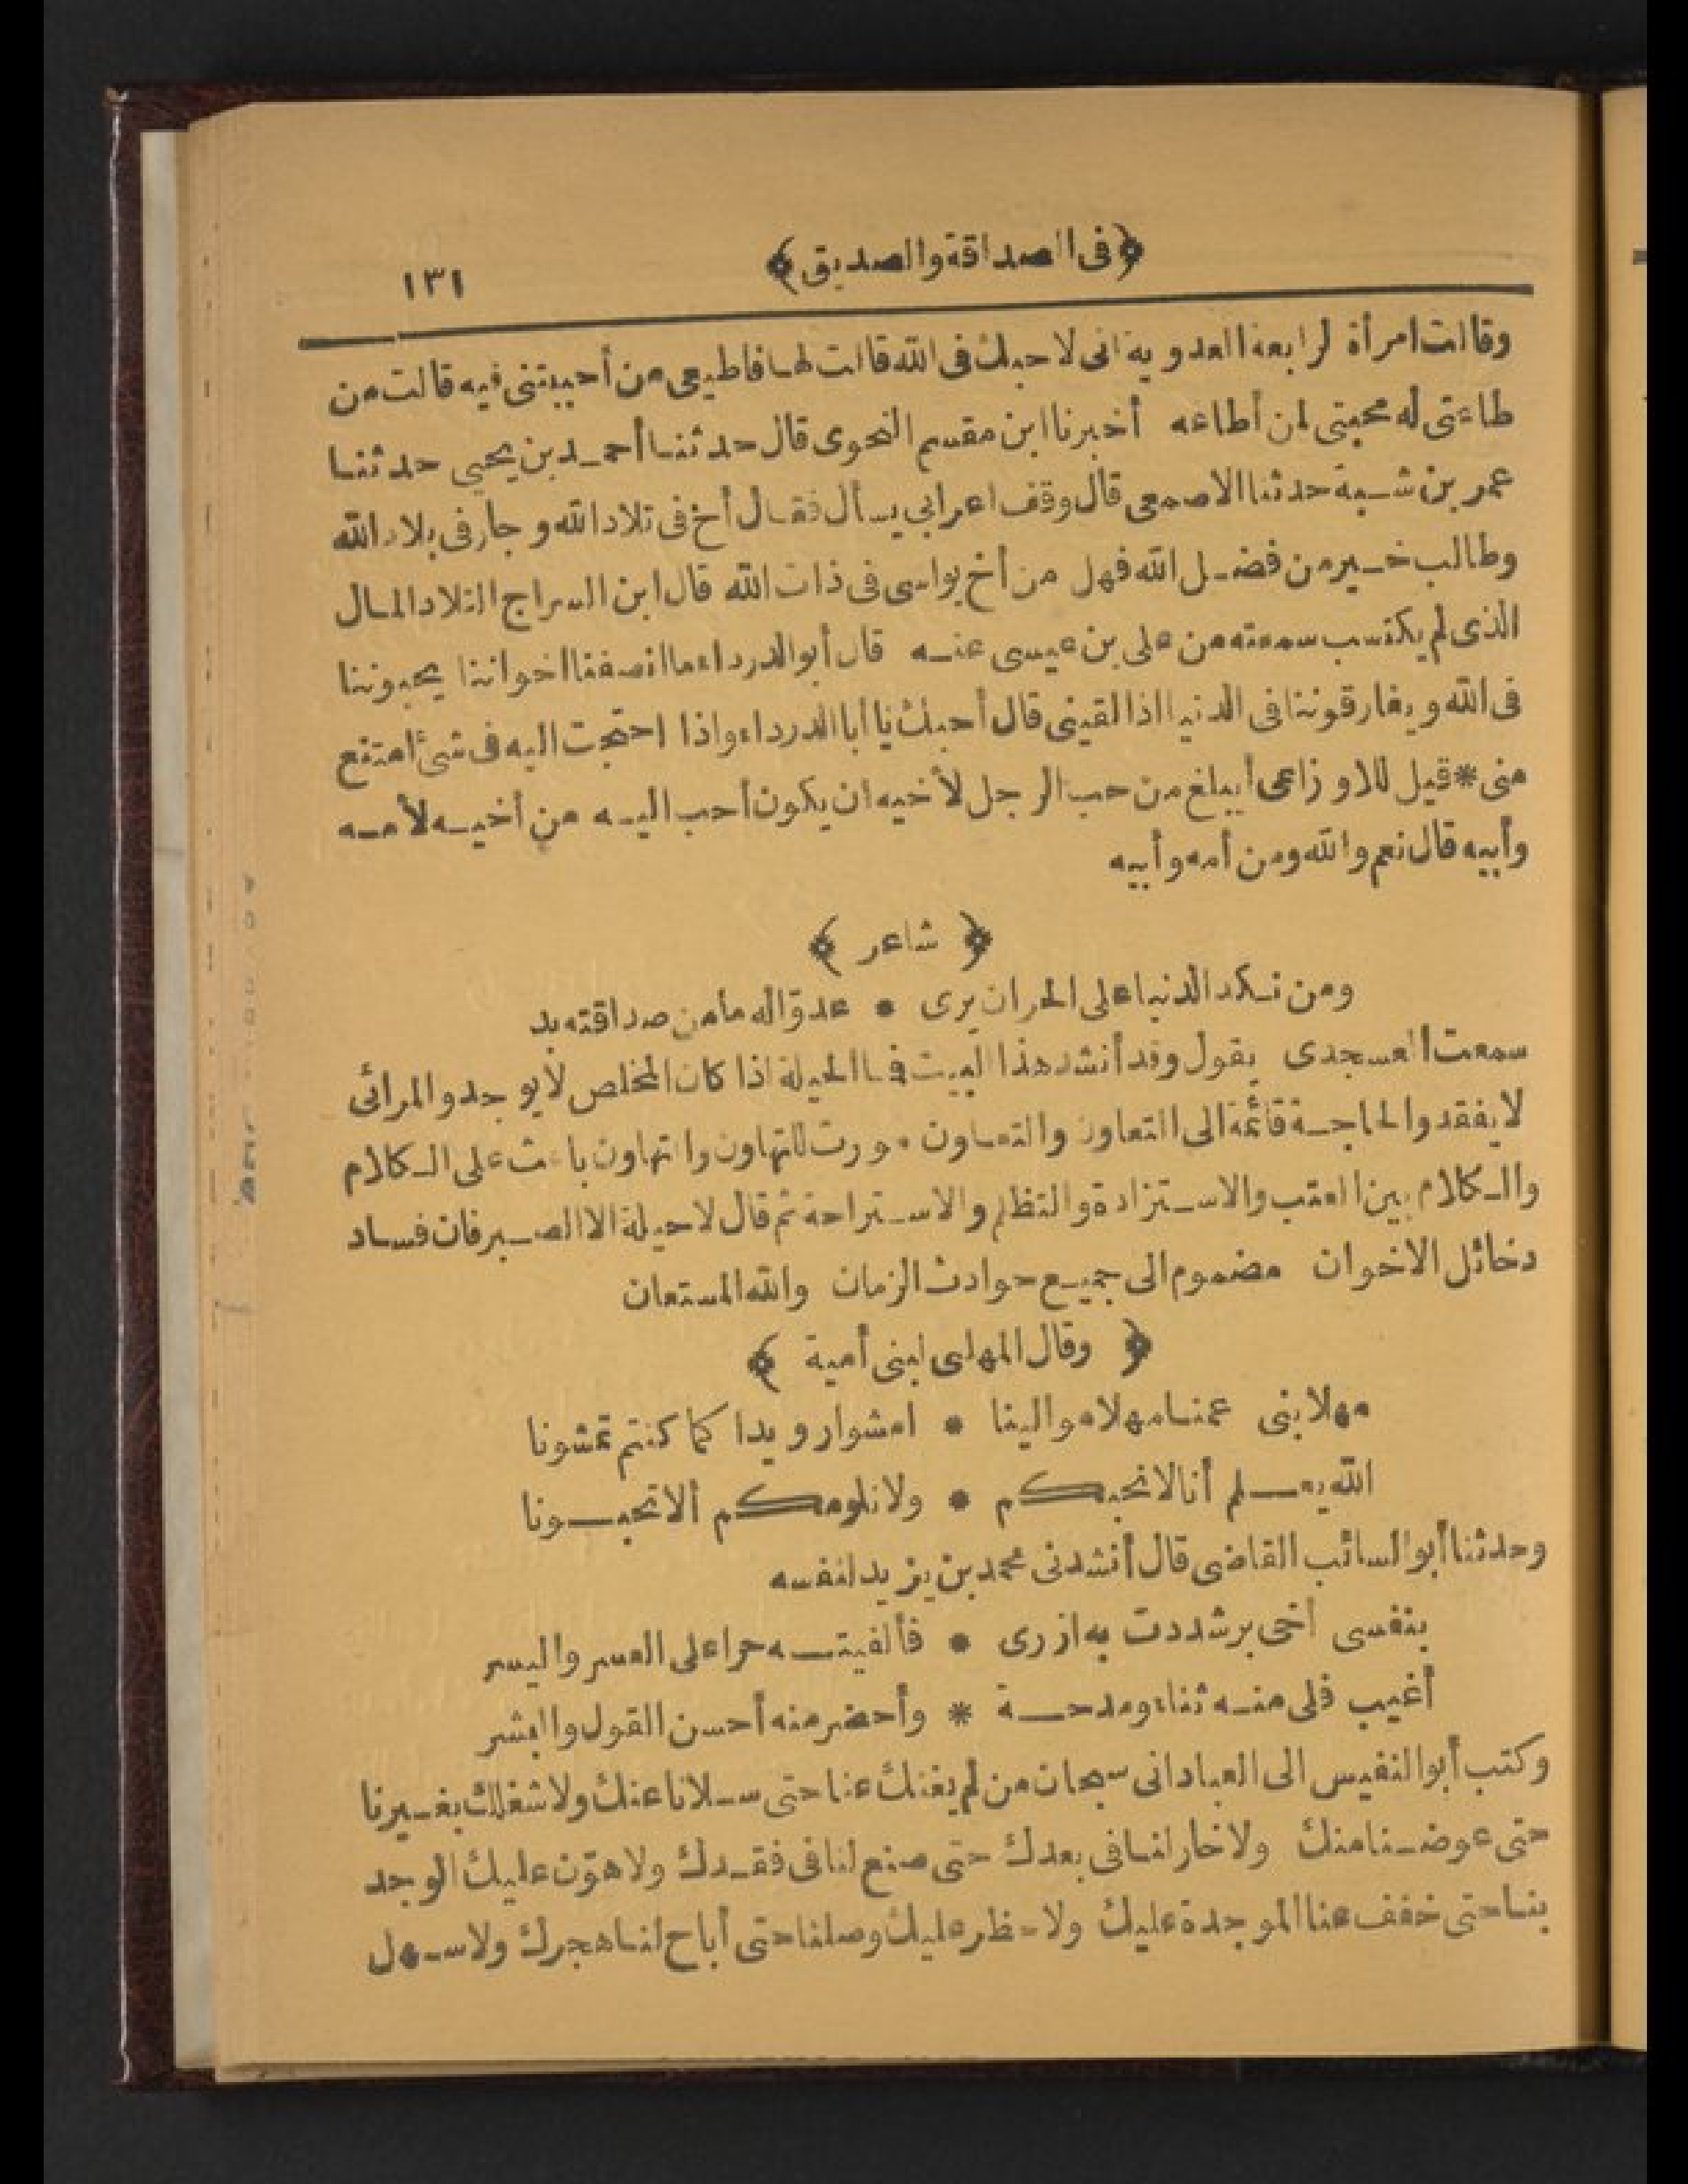 ﴿في الصداقة والصديق﴾ ١٣١
وقالت امرأة لرابعة العدوية انى لاحبك فى الله قالت لها فاطيعى من أحببتنى فيه قالت من
طاعتى له محبتى لمن أطاعه أخبرنا ابن مقسم النحوى قال حدثنا أحمد بن يحيى حدثنا
عمر بن شبة حدثنا الاصمعى قال وقف اعرابي يسأل فقال أخ فى تلاد الله وجار فى بلاد الله
وطالب خير من فضل الله فهل من أخ يواسى فى ذات الله قال ابن السراج التلاد المال
الذى لم يكتسب سمعته من على بن عيسى عنه قال أبو الدرداء ما انصفنا اخواننا يحبوننا
فى الله ويفارقوننا فى الدنيا اذا لقينى قال أحبك يا أبا الدرداء واذا احتجت اليه فى شئ امتنع
منى * قيل للاوزاعى أيبلغ من حب الرجل لأخيه ان يكون أحب اليه من أخيه لأمه
وأبيه قال نعم والله ومن أمه وأبيه
﴿ شاعر ﴾
ومن نكد الدنيا على الحر ان يرى * عدوّا له ما من صداقته بد
سمعت العسجدى يقول وقد أنشد هذا البيت فما الحيلة اذا كان المخلص لا يوجد والمرائى
لا يفقد والحاجة قائمة الى التعاون والتعاون مورث للتهاون والتهاون باعث على الكلام
والكلام بين العتب والاستزادة والتظلم والاستراحة ثم قال لا حيلة الا الصبر فان فساد
دخائل الاخوان مضموم الى جميع حوادث الزمان والله المستعان
﴿ وقال المهلبى لبنى أمية ﴾
مهلا بنى عمنا مهلا موالينا * امشوا رويدا كما كنتم تمشونا
الله يعلم أنا لا نحبكم * ولا نلومكم ألا تحبونا
وحدثنا أبو السائب القاضى قال أنشدنى محمد بن يزيد لنفسه
بنفسى اخى بر شددت به ازرى * فألفيته حرا على العسر واليسر
أغيب فلى منه ثناء ومدحة * وأحضر منه أحسن القول والبشر
وكتب أبو النفيس الى العبادانى سبحان من لم يغنك عنا حتى سلانا عنك ولا شغلك بغيرنا
حتى عوضنا منك ولا خار لنا فى بعدك حتى صنع لنا فى فقدك ولا هوّن عليك الوجد
بنا حتى خفف عنا الموجدة عليك ولا حظر عليك وصلنا حتى أباح لنا هجرك ولا سهل